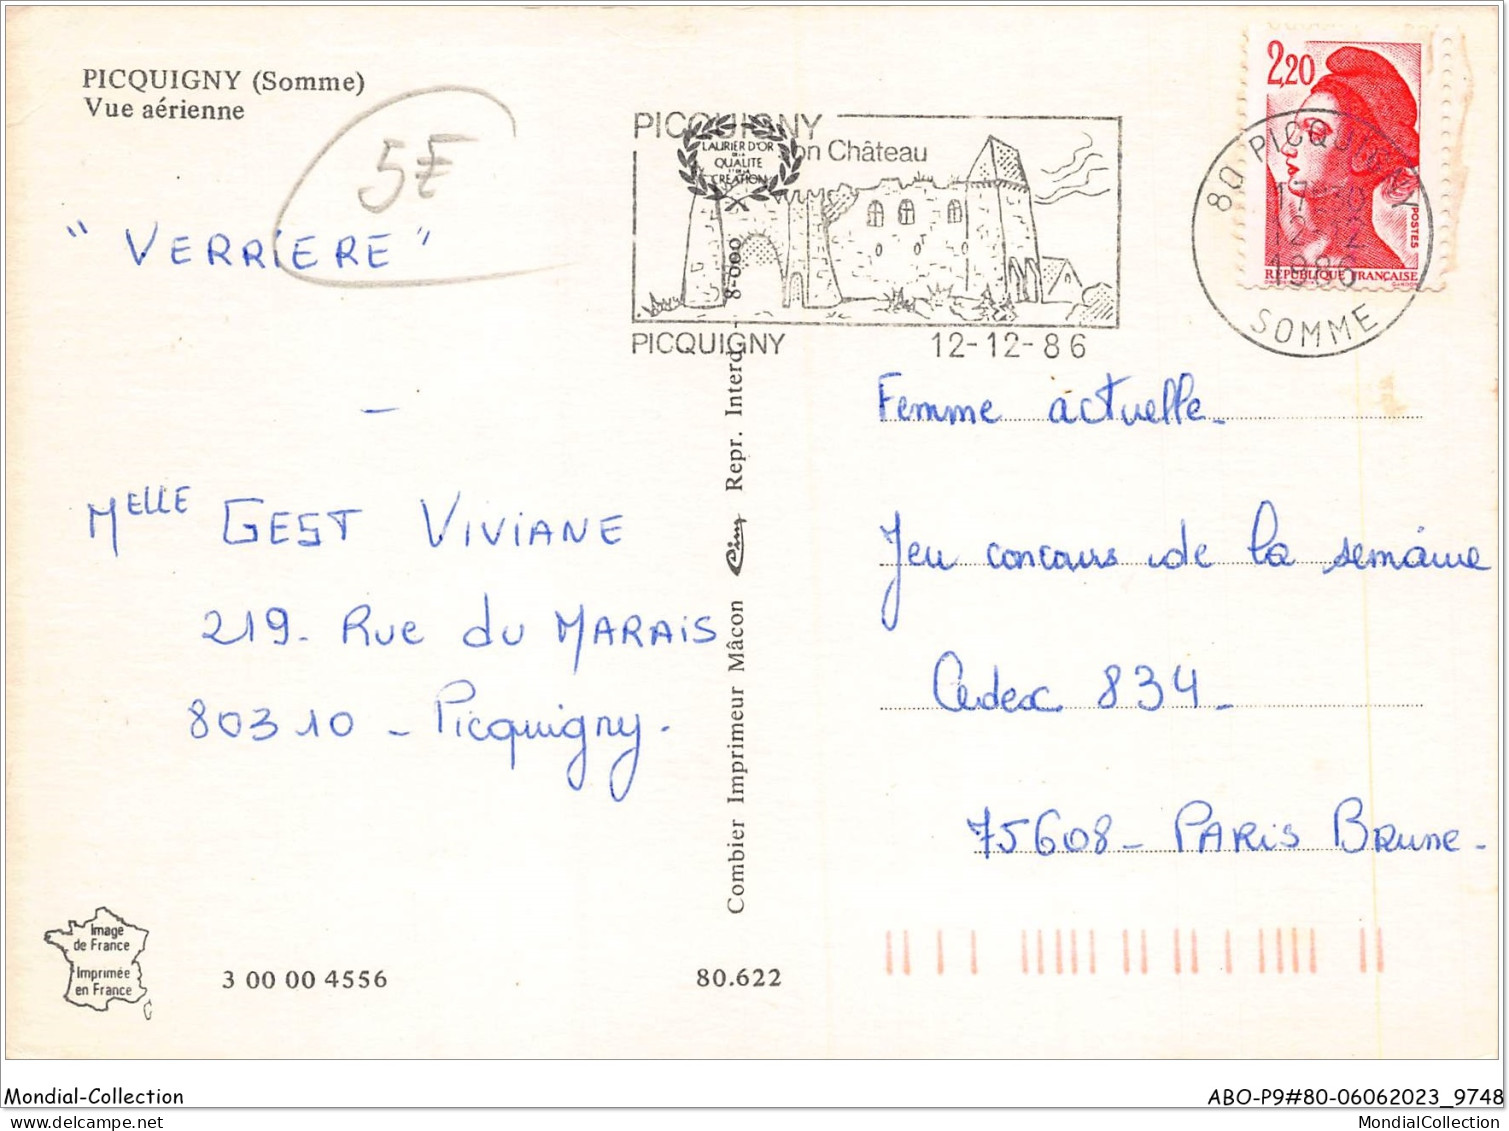 PICQUIGNY (Somme)
Vue aérienne
5€
" VERRIERE "
Melle GEST VIVIANE
219 - Rue du MARAIS
80310 - Picquigny.
Image
de France
Imprimée
en France
3 00 00 4556
80.622
Combier Imprimeur Mâcon Cim Repr. Interd. 8-000
PICQUIGNY
son Château
LAURIER D'OR
DE LA
QUALITE
ET DE LA
CREATION
PICQUIGNY 12-12-86
2,20
POSTES
RÉPUBLIQUE FRANÇAISE
80 PICQUIGNY
17H30
12-12
1986
SOMME
Femme actuelle -
Jeu concours de la semaine
Cedex 834 -
75608 - PARIS BRUNE -
Mondial-Collection
ABO-P9#80-06062023_9748
MondialCollection